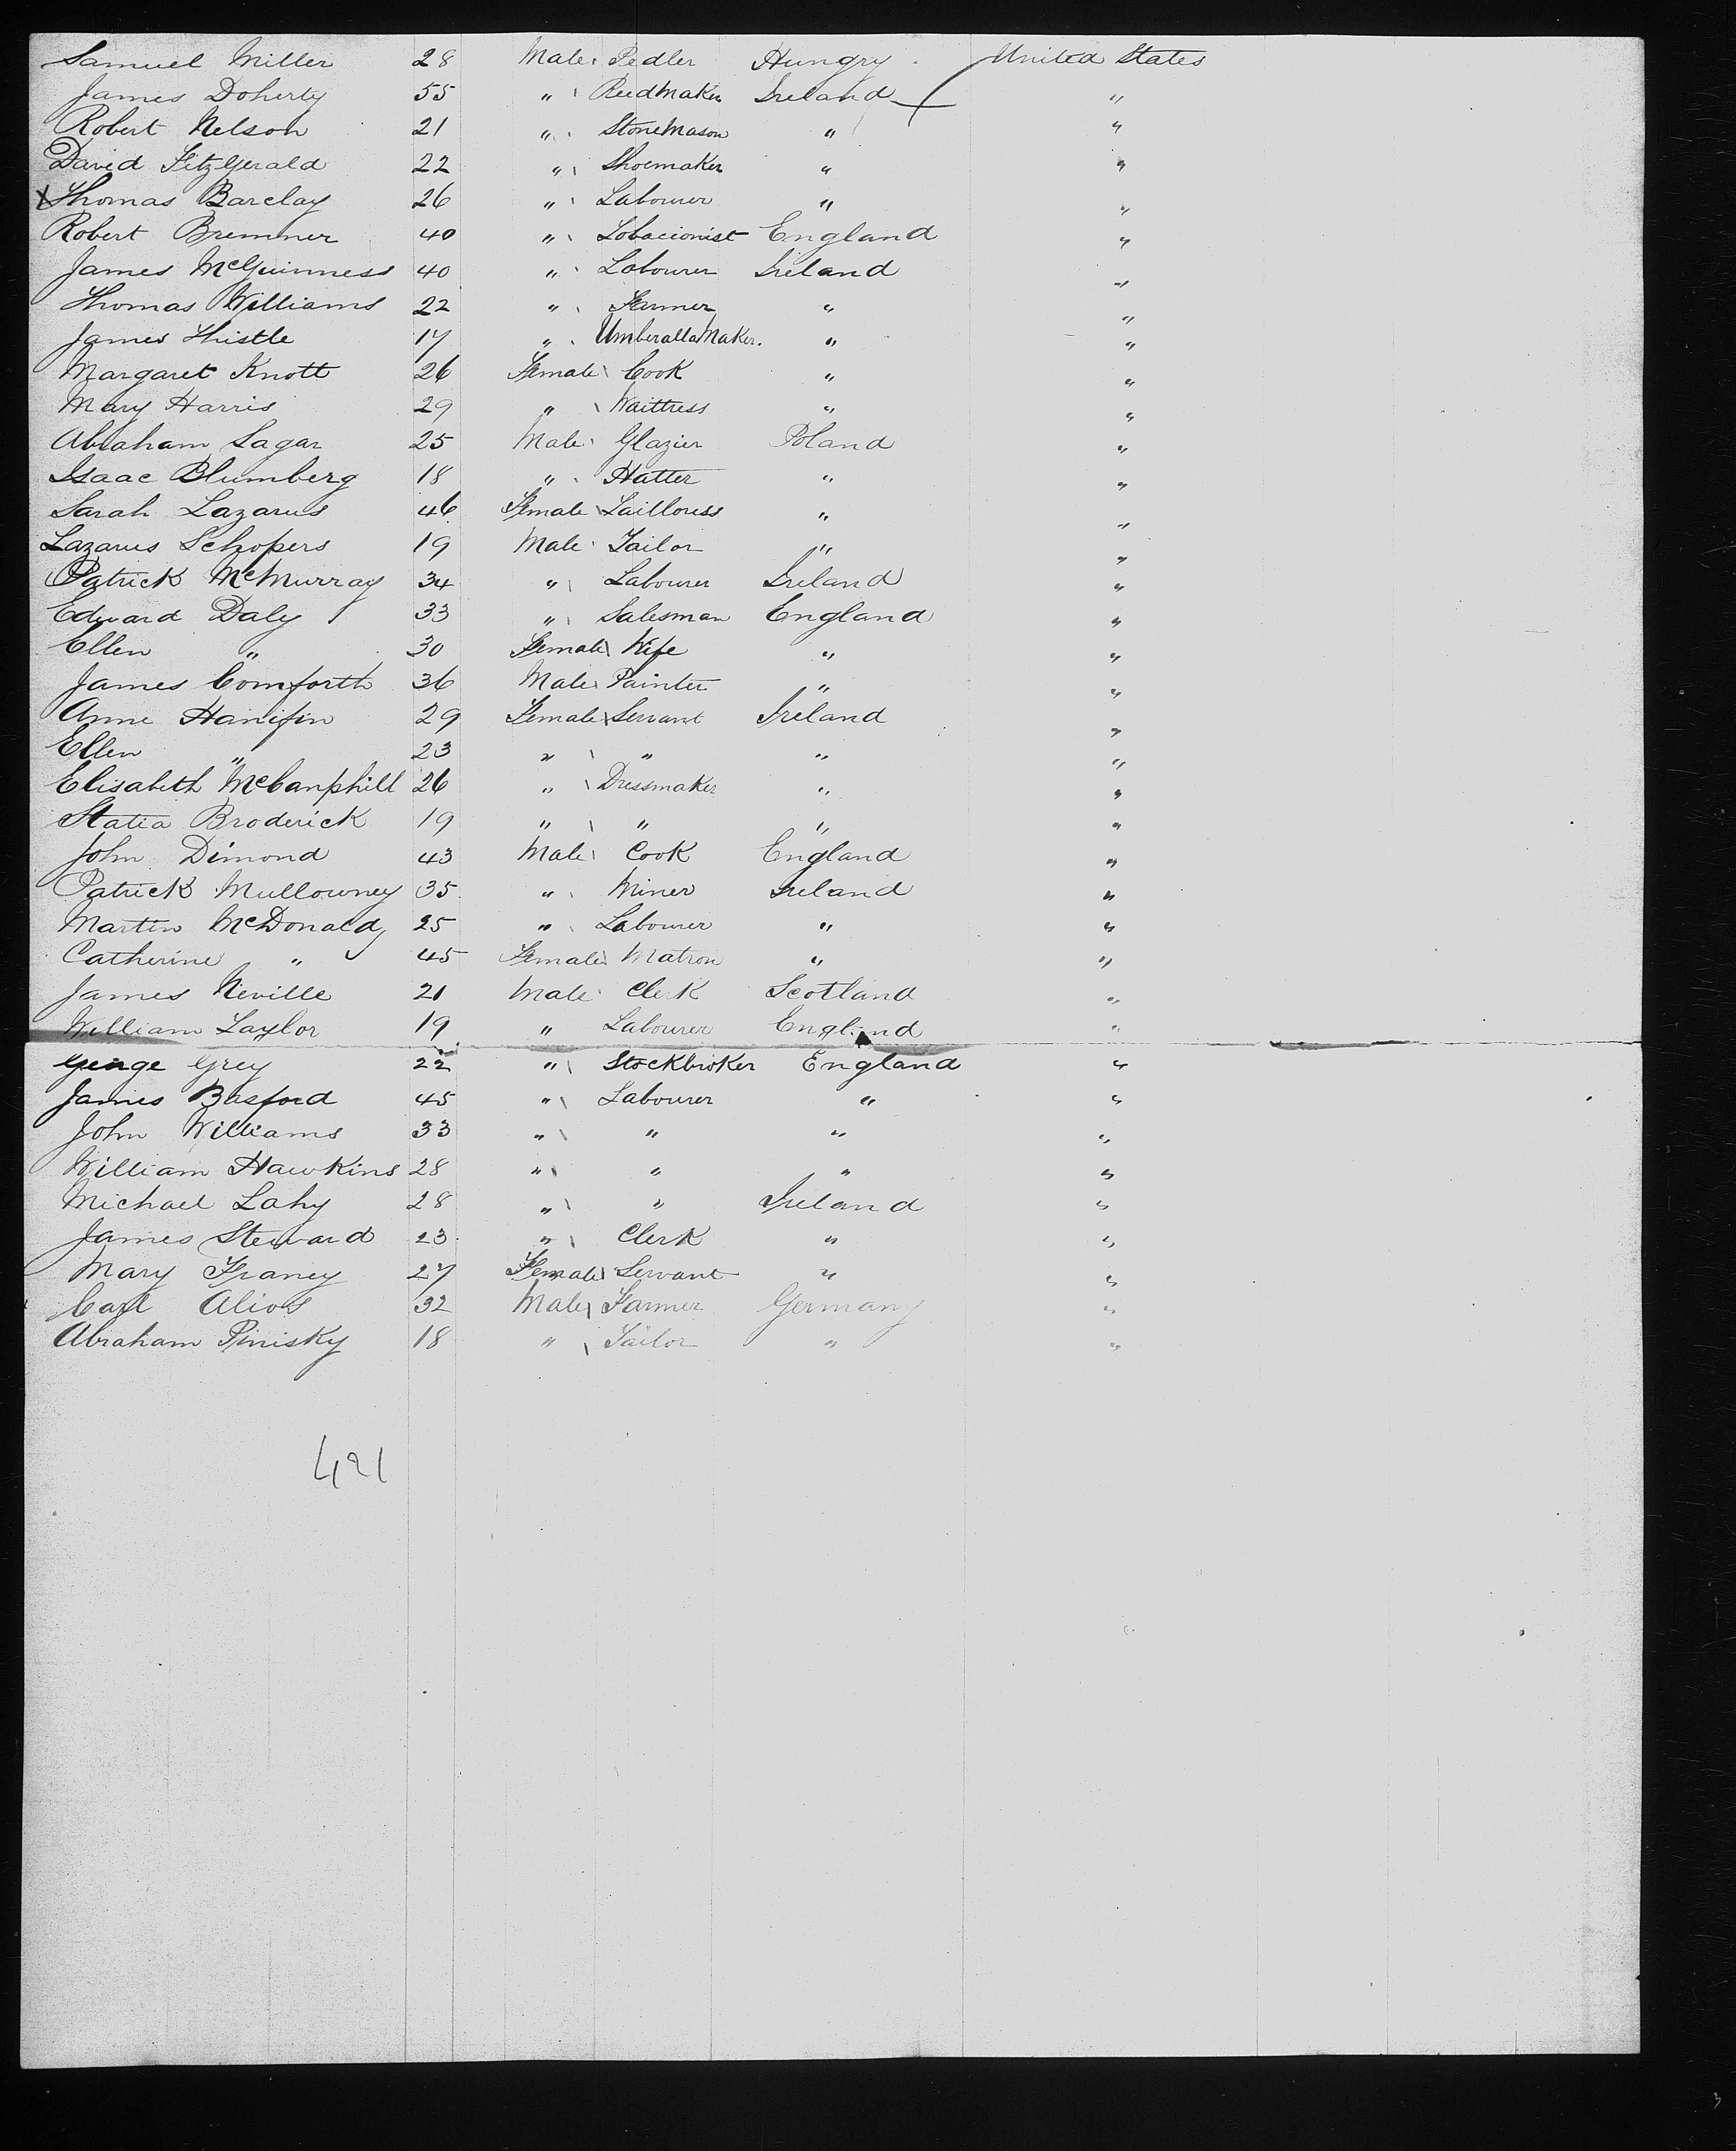 Samuel Miller 28 Male Pedler Hungry United States
James Doherty 55 " Reedmaker Ireland "
Robert Nelson 21 " StoneMason " "
David FitzGerald 22 " Shoemaker " "
Thomas Barclay 26 " Labourer " "
Robert Bremner 40 " Tobacionist England "
James McGuinness 40 " Labourer Ireland "
Thomas Williams 22 " Farmer " "
James Thistle 17 " UmberallaMaker. " "
Margaret Knott 26 Female Cook " "
Mary Harris 29 " Waittress " "
Abraham Sagar 25 Male Glazier Poland "
Isaac Blumberg 18 " Hatter " "
Sarah Lazarus 46 Female Tailloress " "
Lazarus 19 Male Tailor " "
Patrick McMurray 34 " Labourer Ireland "
Edward Daly 33 " Salesman England "
Ellen " 30 Female Wife " "
James Comforth 36 Male Painter " "
Anne Hanifin 29 Female Servant Ireland "
Ellen " 23 " " " "
Elisabeth McCanphill 26 " Dressmaker " "
Statia Broderick 19 " " " "
John Dimond 43 Male Cook England "
Patrick Mullowney 35 " Miner Ireland "
Martin McDonald 25 " Labourer " "
Catherine " 45 Female Matron " "
James Neville 21 Male Clerk Scotland "
William Taylor 19 " Labourer England "
George Grey 22 " Stockbroker England "
James Basford 45 " Labourer " "
John Williams 33 " " " "
William Hawkins 28 " " " "
Michael Lahy 28 " " Ireland "
James Steward 23 " Clerk " "
Mary Franey 27 Female Servant " "
Carl 32 Male Farmer Germany "
Abraham Pinisky 18 " Tailor " "
421